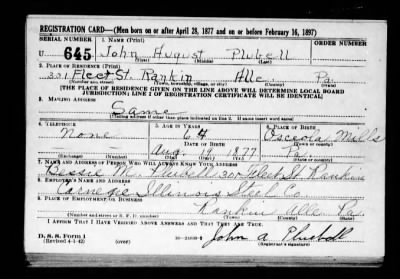 REGISTRATION CARD—(Men born on or after April 28, 1877 and on or before February 16, 1897)
SERIAL NUMBER 1. NAME (Print) ORDER NUMBER
U 645 John August Plubell
(First) (Middle) (Last)
2. PLACE OF RESIDENCE (Print)
301 Elect St. Rankin Alle. Pa.
(Number and street) (Town, township, village, or city) (County) (State)
[THE PLACE OF RESIDENCE GIVEN ON THE LINE ABOVE WILL DETERMINE LOCAL BOARD
JURISDICTION; LINE 2 OF REGISTRATION CERTIFICATE WILL BE IDENTICAL]
3. MAILING ADDRESS
Same
[Mailing address if other than place indicated on line 2. If same insert word same]
4. TELEPHONE 5. AGE IN YEARS 6. PLACE OF BIRTH
None 64 Osceola Mills
DATE OF BIRTH (Town or county)
Aug. 19 1877 Pa.
(Exchange) (Number) (Mo.) (Day) (Yr.) (State or country)
7. NAME AND ADDRESS OF PERSON WHO WILL ALWAYS KNOW YOUR ADDRESS
Bessie M. Plubell 301 Elect St. Rankin
8. EMPLOYER'S NAME AND ADDRESS
Carnegie Illinois Steel Co.
9. PLACE OF EMPLOYMENT OR BUSINESS
Rankin Alle. Pa.
(Number and street or R. F. D. number) (Town) (County) (State)
I AFFIRM THAT I HAVE VERIFIED ABOVE ANSWERS AND THAT THEY ARE TRUE.
D. S. S. Form 1
(Revised 4-1-42) (over) John A Plubell